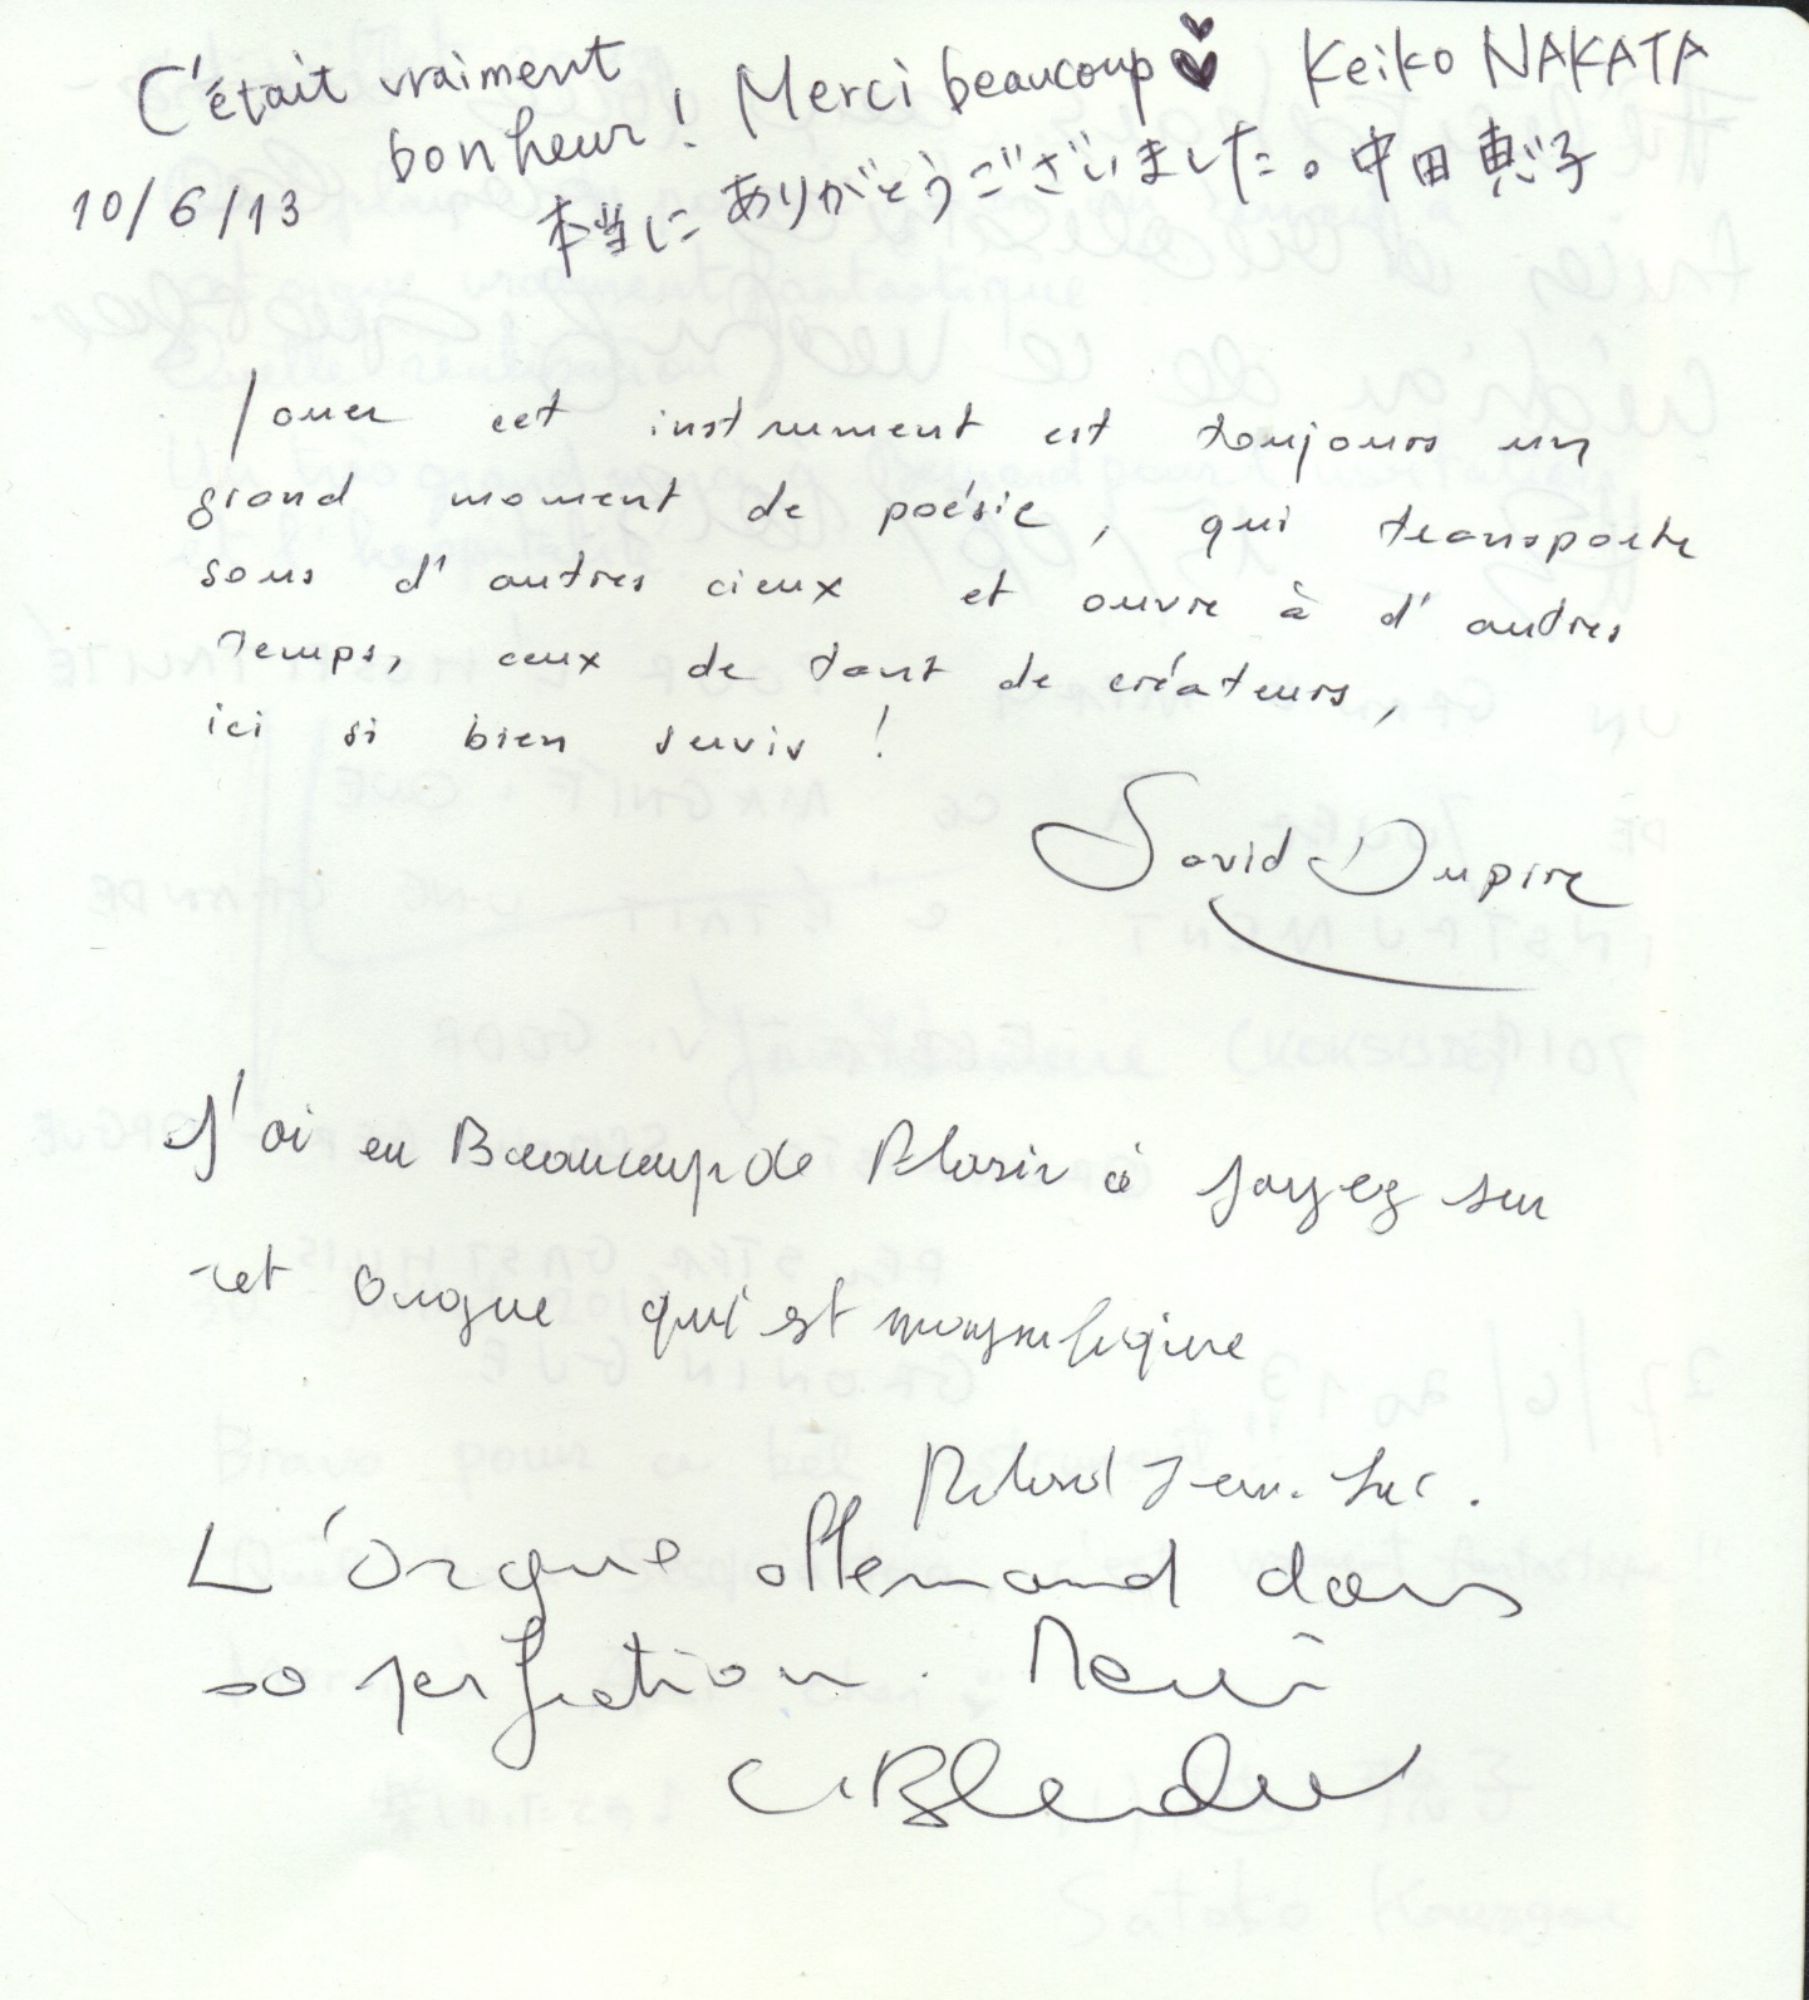 C'était vraiment
bonheur! Merci beaucoup Keiko NAKATA
10/6/13 本当にありがとうございました。中田恵子
Jouer cet instrument est toujours un
grand moment de poésie, qui transporte
sous d'autres cieux et ouvre à d'autres
temps, ceux de tant de créateurs,
ici si bien servis !
David Dupire
J'ai eu Beaucoup de Plasir à
sur
cet Orgue qui est
Jean-Luc.
L'Orgue allemand dans
sa perfection. Merci